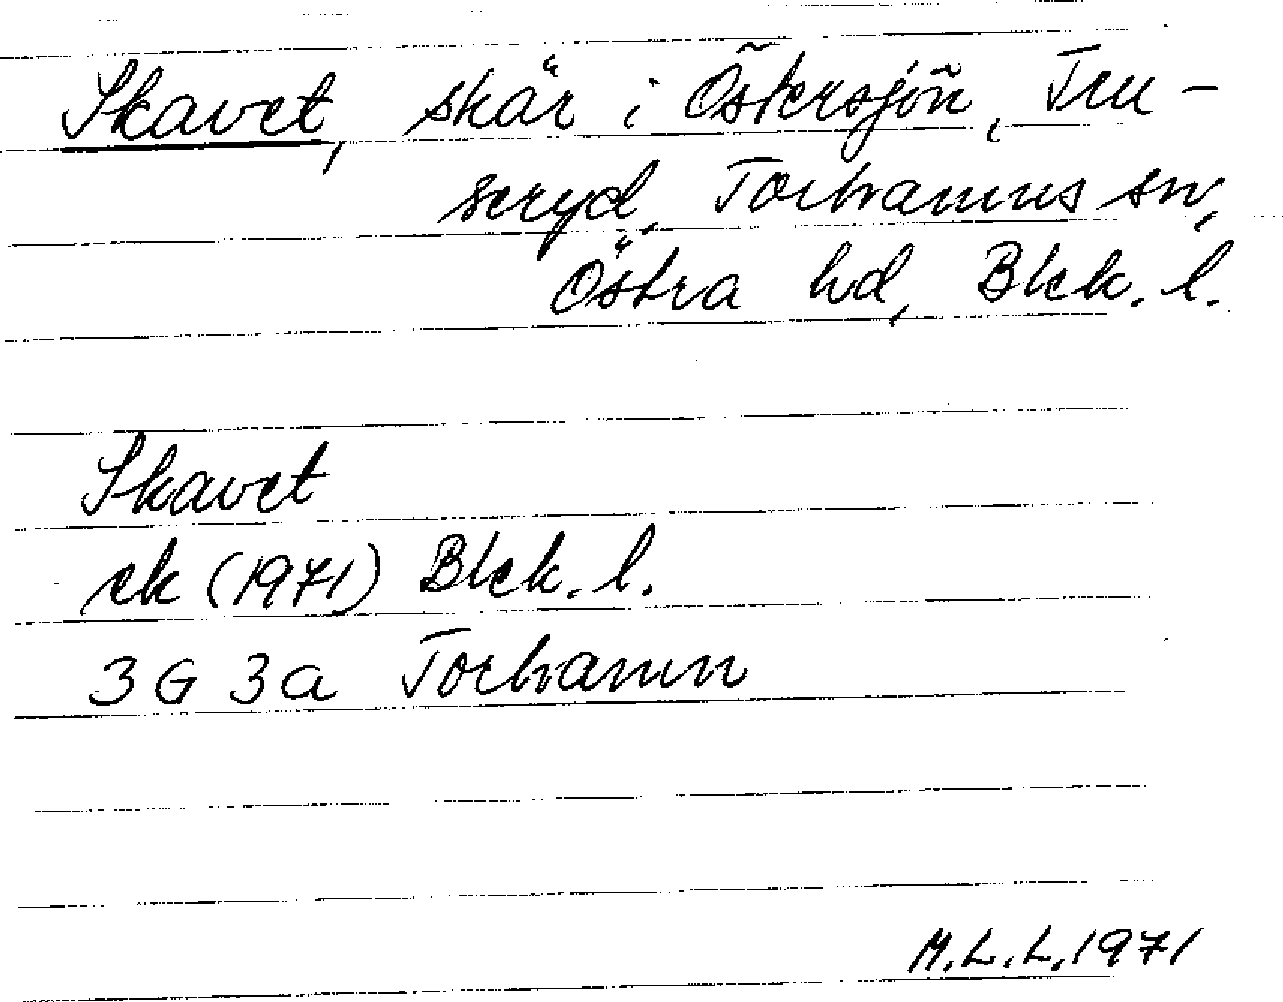 Skavet, skär i Östersjön, Tru-
seryd, Torhamns sn,
Östra hd, Blek. l.
Skavet
ek (1971) Blek. l.
3 G 3a Torhamn
M.L.L. 1971